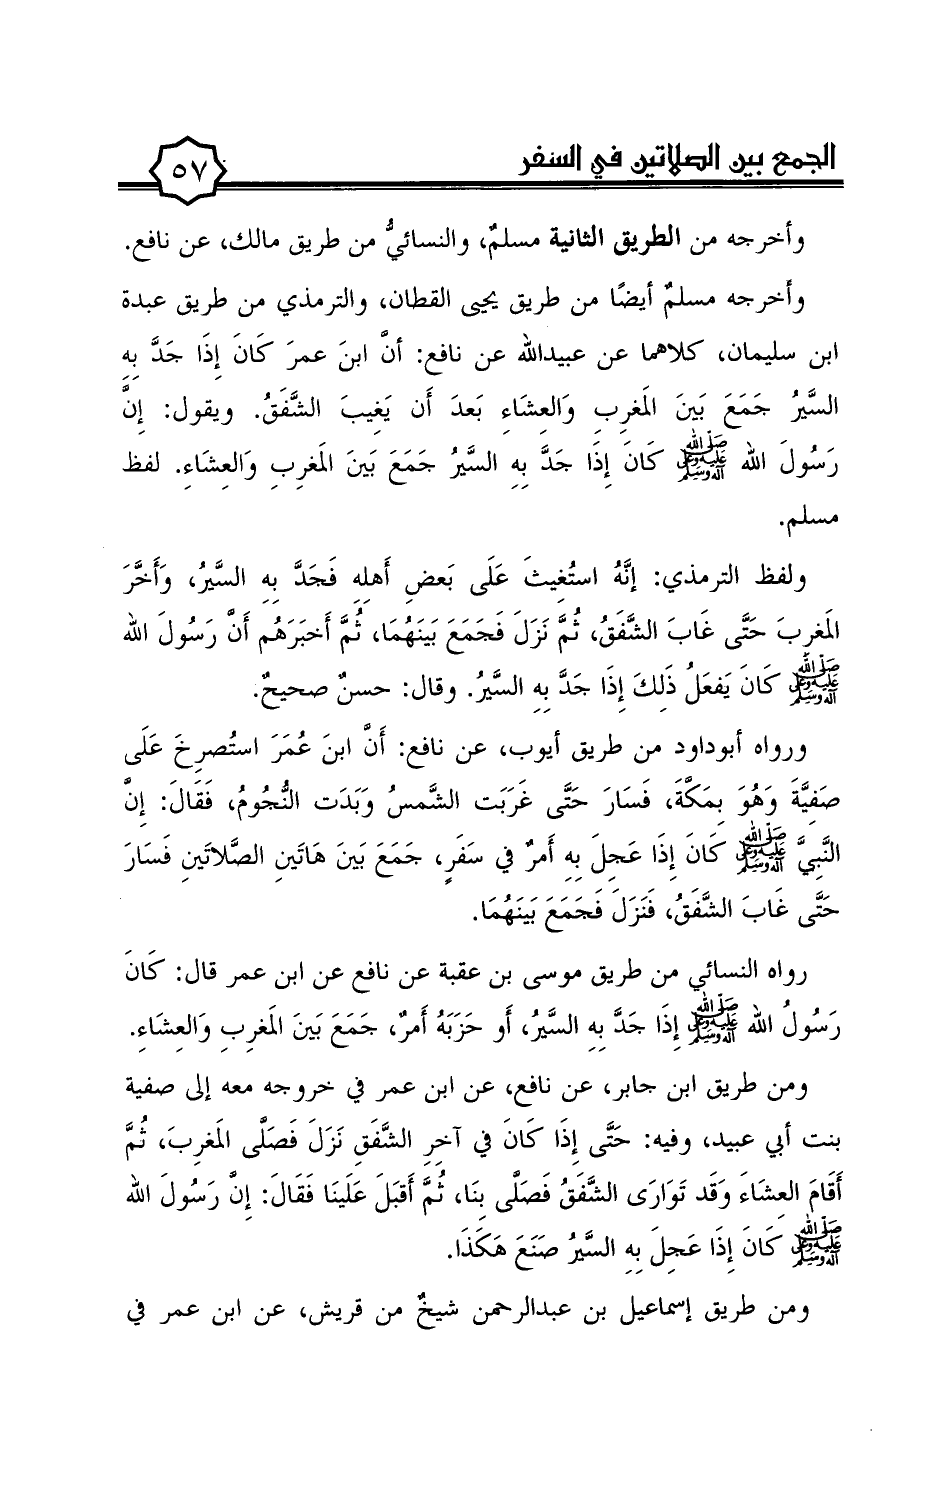 الجمع بين الصلاتين في السفر
٥٧
وأخرجه من الطريق الثانية مسلمٌ، والنسائيُّ من طريق مالك، عن نافع.
وأخرجه مسلمٌ أيضًا من طريق يحيى القطان، والترمذي من طريق عبدة
ابن سليمان، كلاهما عن عبيدالله عن نافع: أنَّ ابنَ عمرَ كَانَ إِذَا جَدَّ بِهِ
السَّيرُ جَمَعَ بَينَ المَغرِبِ وَالعِشَاءِ بَعدَ أَن يَغِيبَ الشَّفَقُ. ويقول: إِنَّ
رَسُولَ الله ﷺ كَانَ إِذَا جَدَّ بِهِ السَّيرُ جَمَعَ بَينَ المَغرِبِ وَالعِشَاءِ. لفظ
مسلم.
ولفظ الترمذي: إِنَّهُ استُغِيثَ عَلَى بَعضِ أَهلِهِ فَجَدَّ بِهِ السَّيرُ، وَأَخَّرَ
المَغرِبَ حَتَّى غَابَ الشَّفَقُ، ثُمَّ نَزَلَ فَجَمَعَ بَينَهُمَا، ثُمَّ أَخبَرَهُم أَنَّ رَسُولَ الله
ﷺ كَانَ يَفعَلُ ذَلِكَ إِذَا جَدَّ بِهِ السَّيرُ. وقال: حسنٌ صحيحٌ.
ورواه أبوداود من طريق أيوب، عن نافع: أَنَّ ابنَ عُمَرَ استُصرِخَ عَلَى
صَفِيَّةَ وَهُوَ بِمَكَّةَ، فَسَارَ حَتَّى غَرَبَت الشَّمسُ وَبَدَت النُّجُومُ، فَقَالَ: إِنَّ
النَّبِيَّ ﷺ كَانَ إِذَا عَجِلَ بِهِ أَمرٌ فِي سَفَرٍ، جَمَعَ بَينَ هَاتَينِ الصَّلاتَينِ فَسَارَ
حَتَّى غَابَ الشَّفَقُ، فَنَزَلَ فَجَمَعَ بَينَهُمَا.
رواه النسائي من طريق موسى بن عقبة عن نافع عن ابن عمر قال: كَانَ
رَسُولُ الله ﷺ إِذَا جَدَّ بِهِ السَّيرُ، أَو حَزَبَهُ أَمرٌ، جَمَعَ بَينَ المَغرِبِ وَالعِشَاءِ.
ومن طريق ابن جابر، عن نافع، عن ابن عمر في خروجه معه إلى صفية
بنت أبي عبيد، وفيه: حَتَّى إِذَا كَانَ فِي آخِرِ الشَّفَقِ نَزَلَ فَصَلَّى المَغرِبَ، ثُمَّ
أَقَامَ العِشَاءَ وَقَد تَوَارَى الشَّفَقُ فَصَلَّى بِنَا، ثُمَّ أَقبَلَ عَلَينَا فَقَالَ: إِنَّ رَسُولَ الله
ﷺ كَانَ إِذَا عَجِلَ بِهِ السَّيرُ صَنَعَ هَكَذَا.
ومن طريق إسماعيل بن عبدالرحمن شيخٌ من قريش، عن ابن عمر في